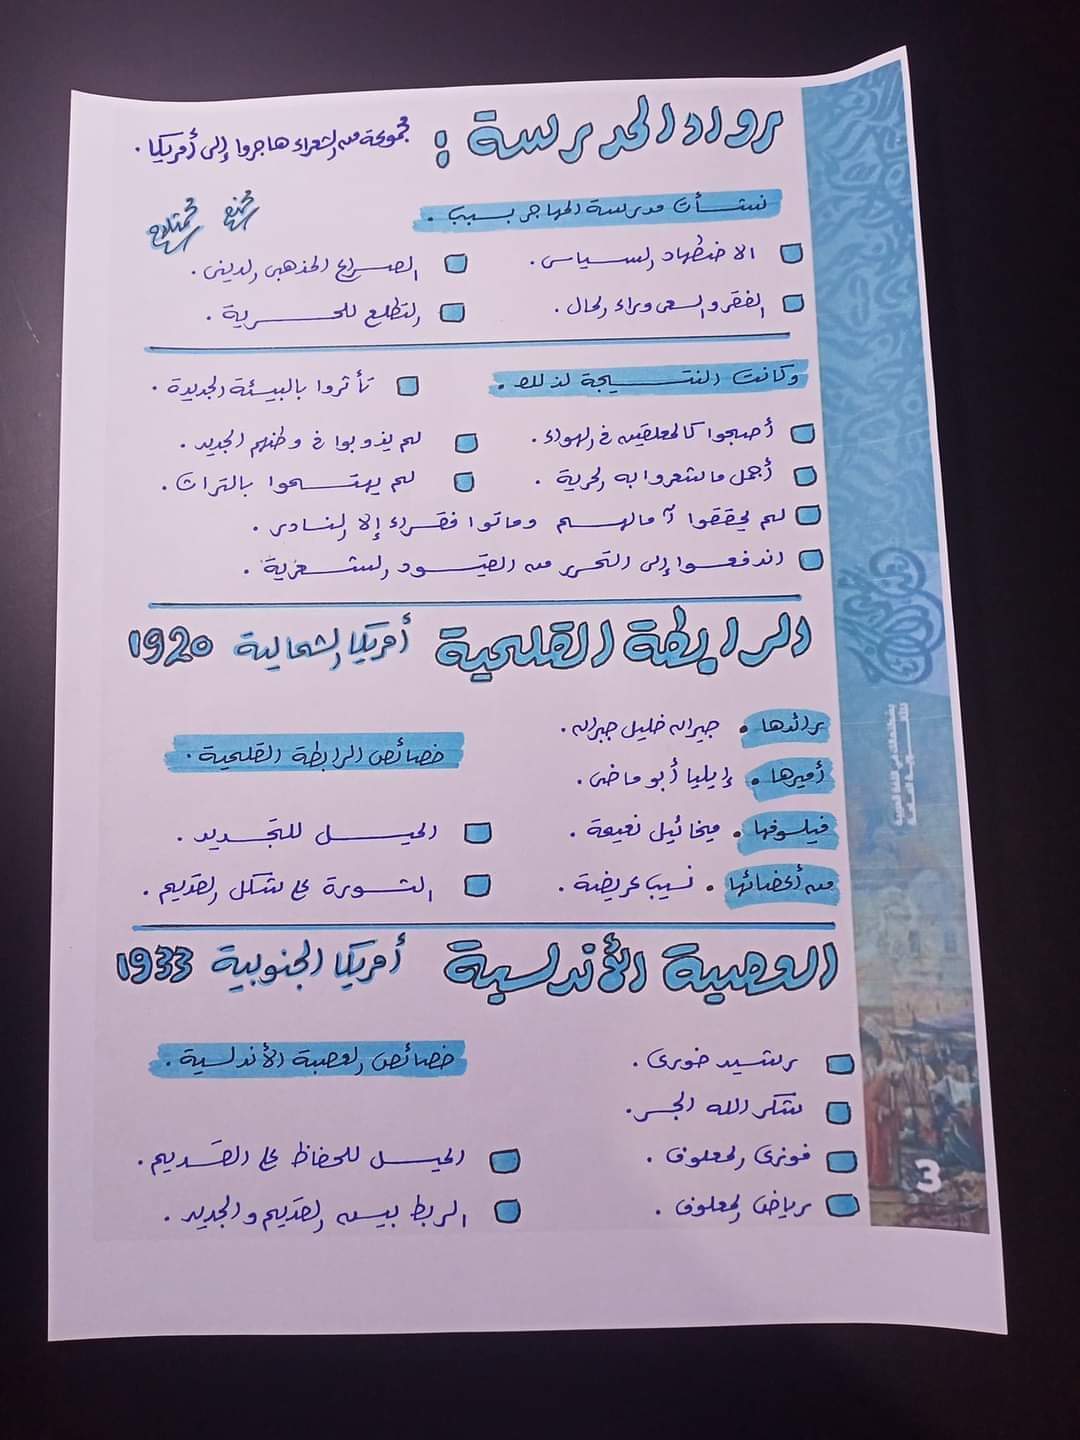 رواد المدرسة :
مجموعة من الشعراء هاجروا إلى أمريكا .
نشأت مدرسة المهاجر بسبب .
الاضطهاد السياسى .
الصراع المذهبى الدينى .
الفقر والسعى وراء المال .
التطلع للحرية .
وكانت النتيجة لذلك .
تأثروا بالبيئة الجديدة .
أصبحوا كالمعلقين فى الهواء .
لم يذوبوا فى وطنهم الجديد .
أجمل ما شعروا به الحرية .
لم يهتموا بالتراث .
لم يحققوا آمالهم وماتوا فقراء إلا النادر .
اندفعوا إلى التحرر من القيود الشعرية .
الرابطة القلمية
أمريكا الشمالية 1920
رائدها . جبران خليل جبران .
خصائص الرابطة القلمية .
أميرها . إيليا أبو ماضى .
فيلسوفها . ميخائيل نعيمة .
الميل للتجديد .
من أعضائها . نسيب عريضة .
الثورة على شكل القديم .
العصبة الأندلسية
أمريكا الجنوبية 1933
رشيد خورى .
خصائص العصبة الأندلسية .
شكر الله الجر .
فوزى المعلوف .
الميل للحفاظ على القديم .
رياض المعلوف .
الربط بين القديم والجديد .
3